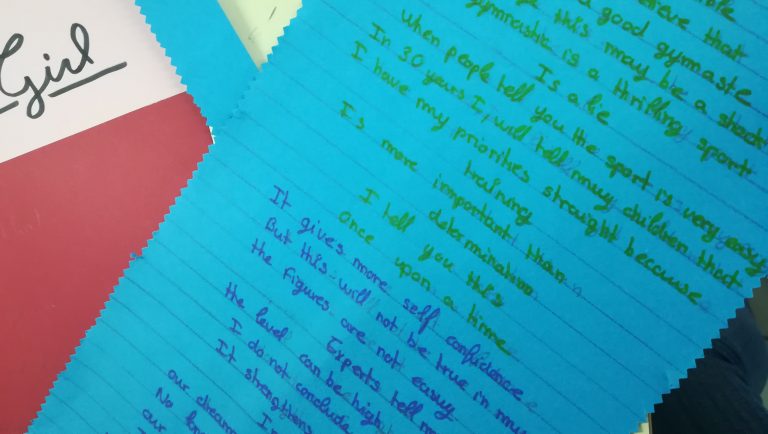 Girl
that
a good gymnaste
this may be a shock
gymnastic is a thrilling sport
Is a lie
when people tell you the sport is very easy
In 30 years I, will tell muy children that
I have my priorities straight because
training
Is more important than
determination
I tell you this
Once upon a time
It gives more self confidence
But this will not be true in
the figures are not easy
Experts tell
the level can be high
I do not conclude
It strengthens
our
No
our